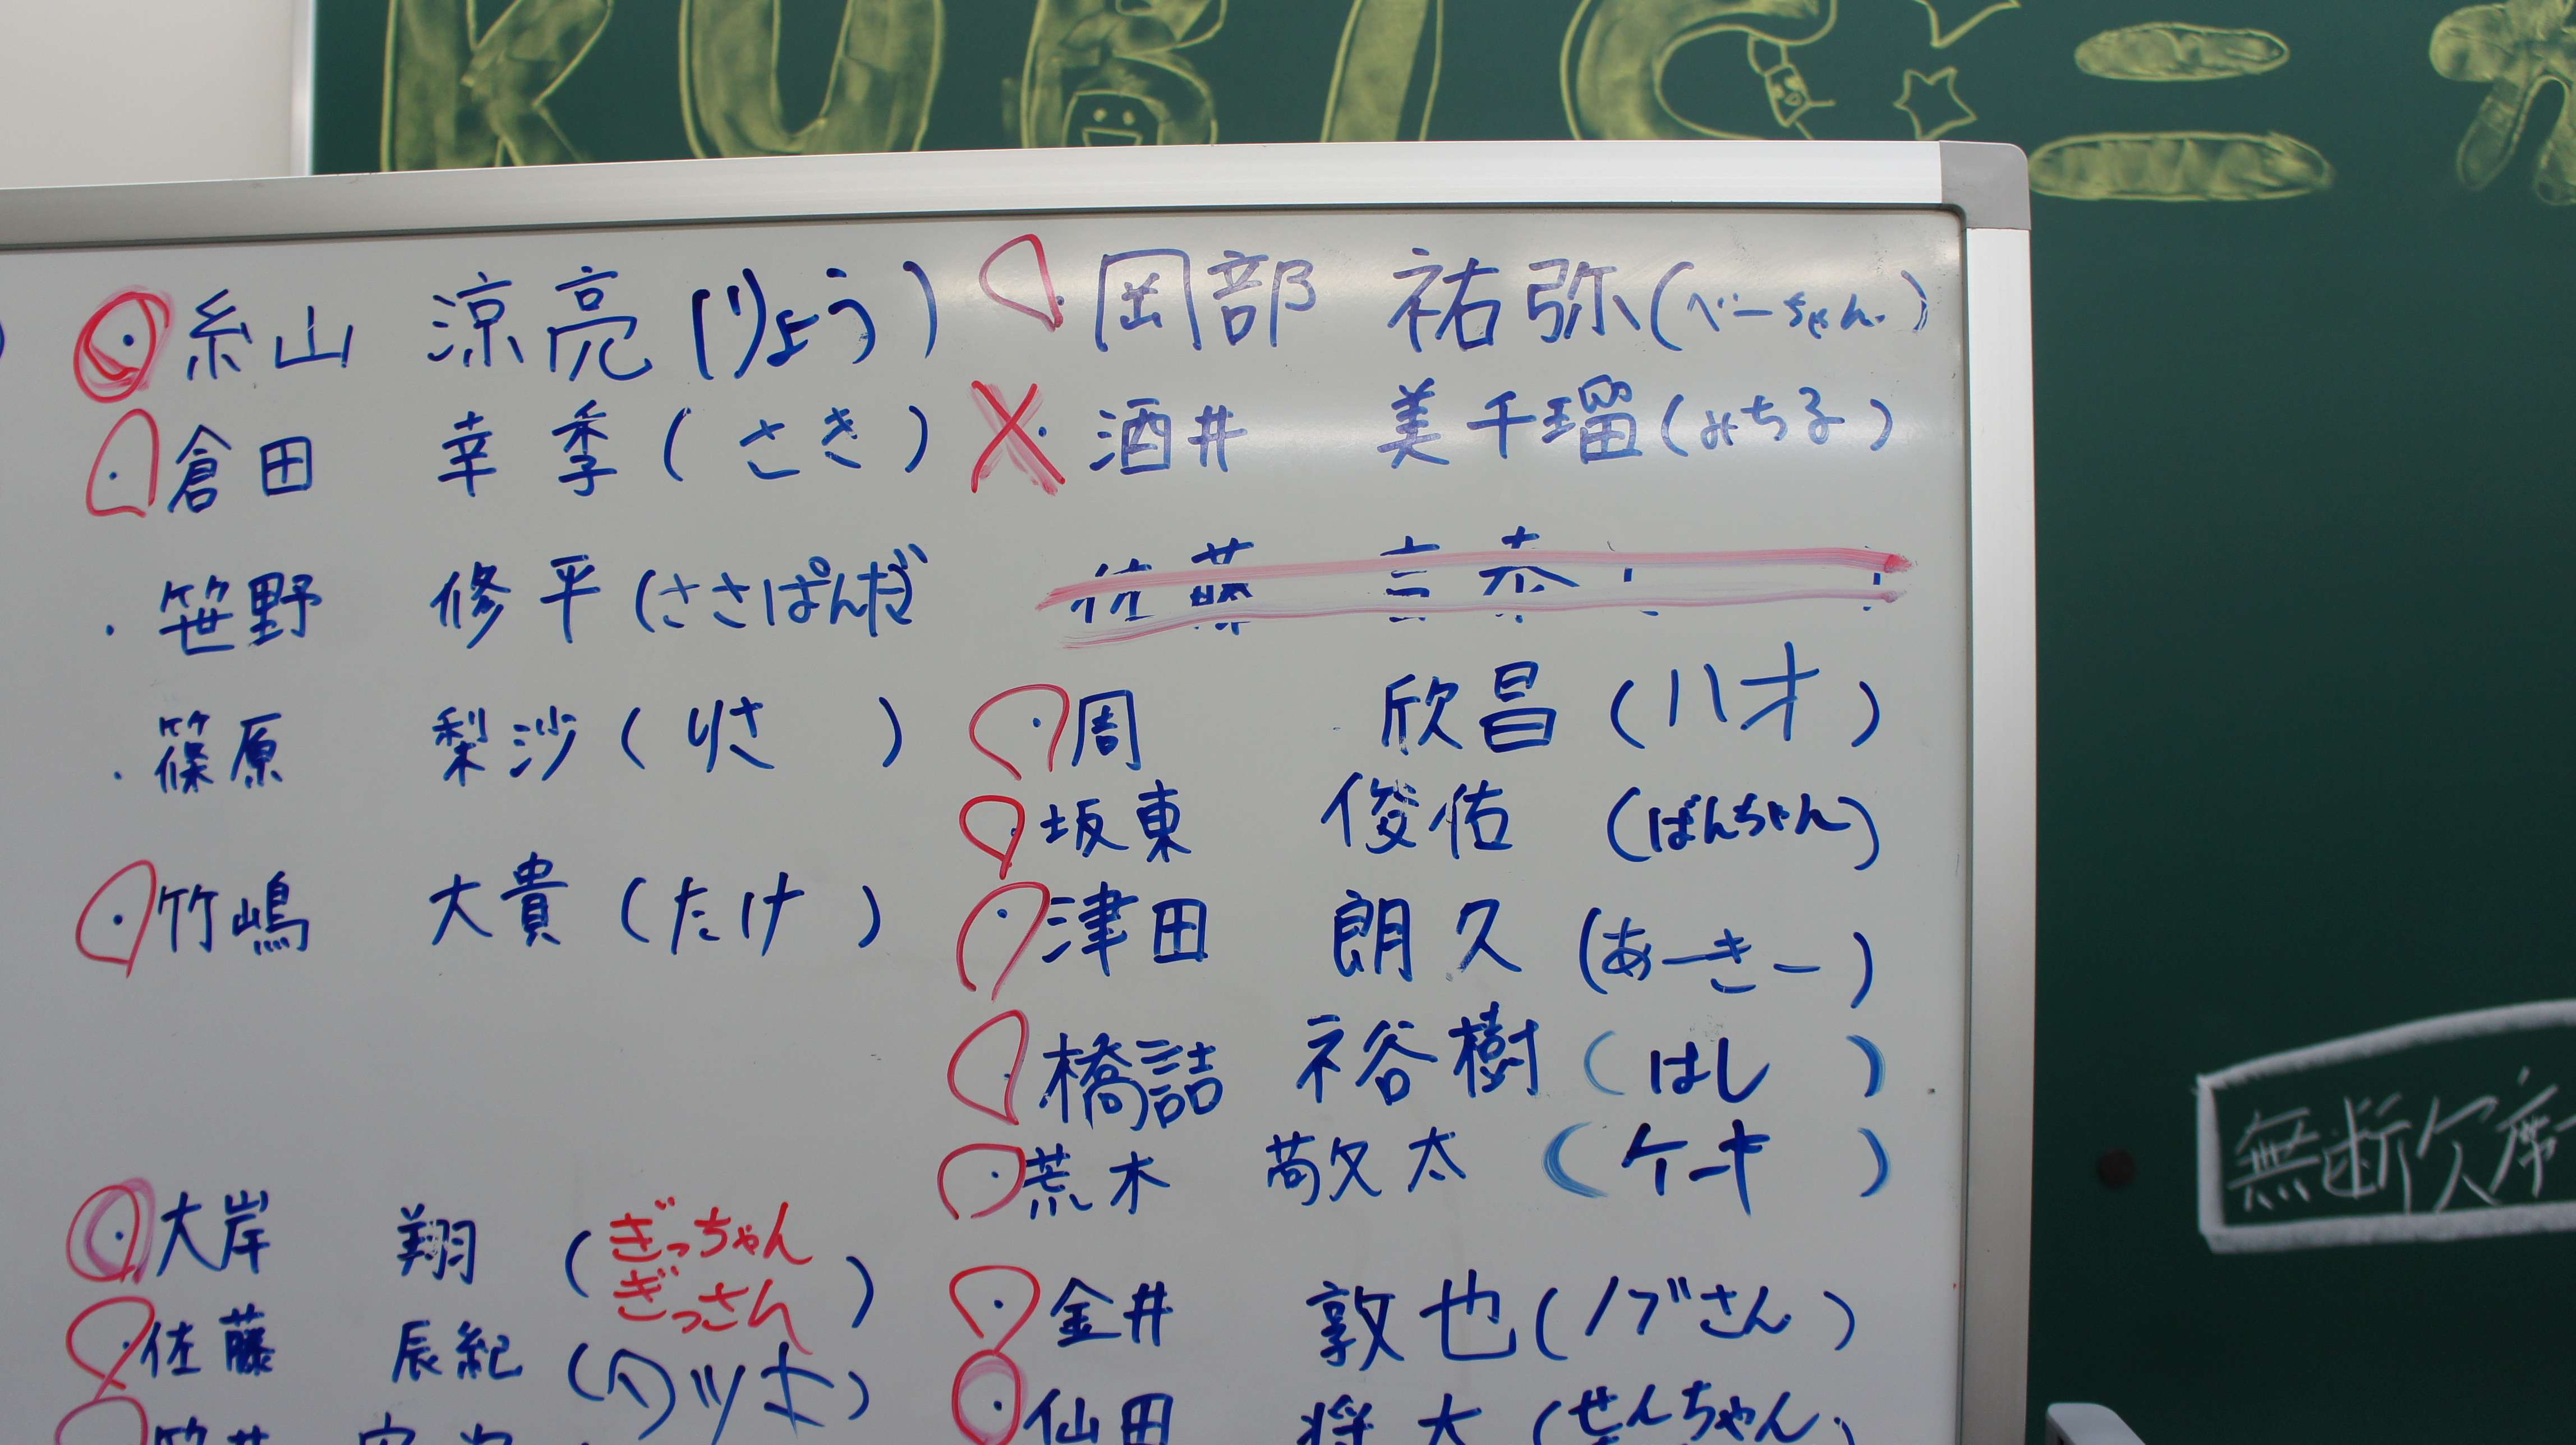 KUBIC
糸山 涼亮(りょう)
倉田 幸季(さき)
笹野 修平(ささぱんだ)
篠原 梨沙(りさ)
竹嶋 大貴(たけ)
大岸 翔(ぎっちゃん
ぎっさん)
佐藤 辰紀(タツキ)
岡部 祐弥(べーちゃん)
酒井 美千瑠(みちる)
佐藤
周 欣昌(ハオ)
坂東 俊佑(ばんちゃん)
津田 朗久(あーきー)
橋詰 裕樹(はし)
荒木 敬太(ケーキ)
金井 敦也(ノブさん)
仙田 将太(せんちゃん)
無断欠席